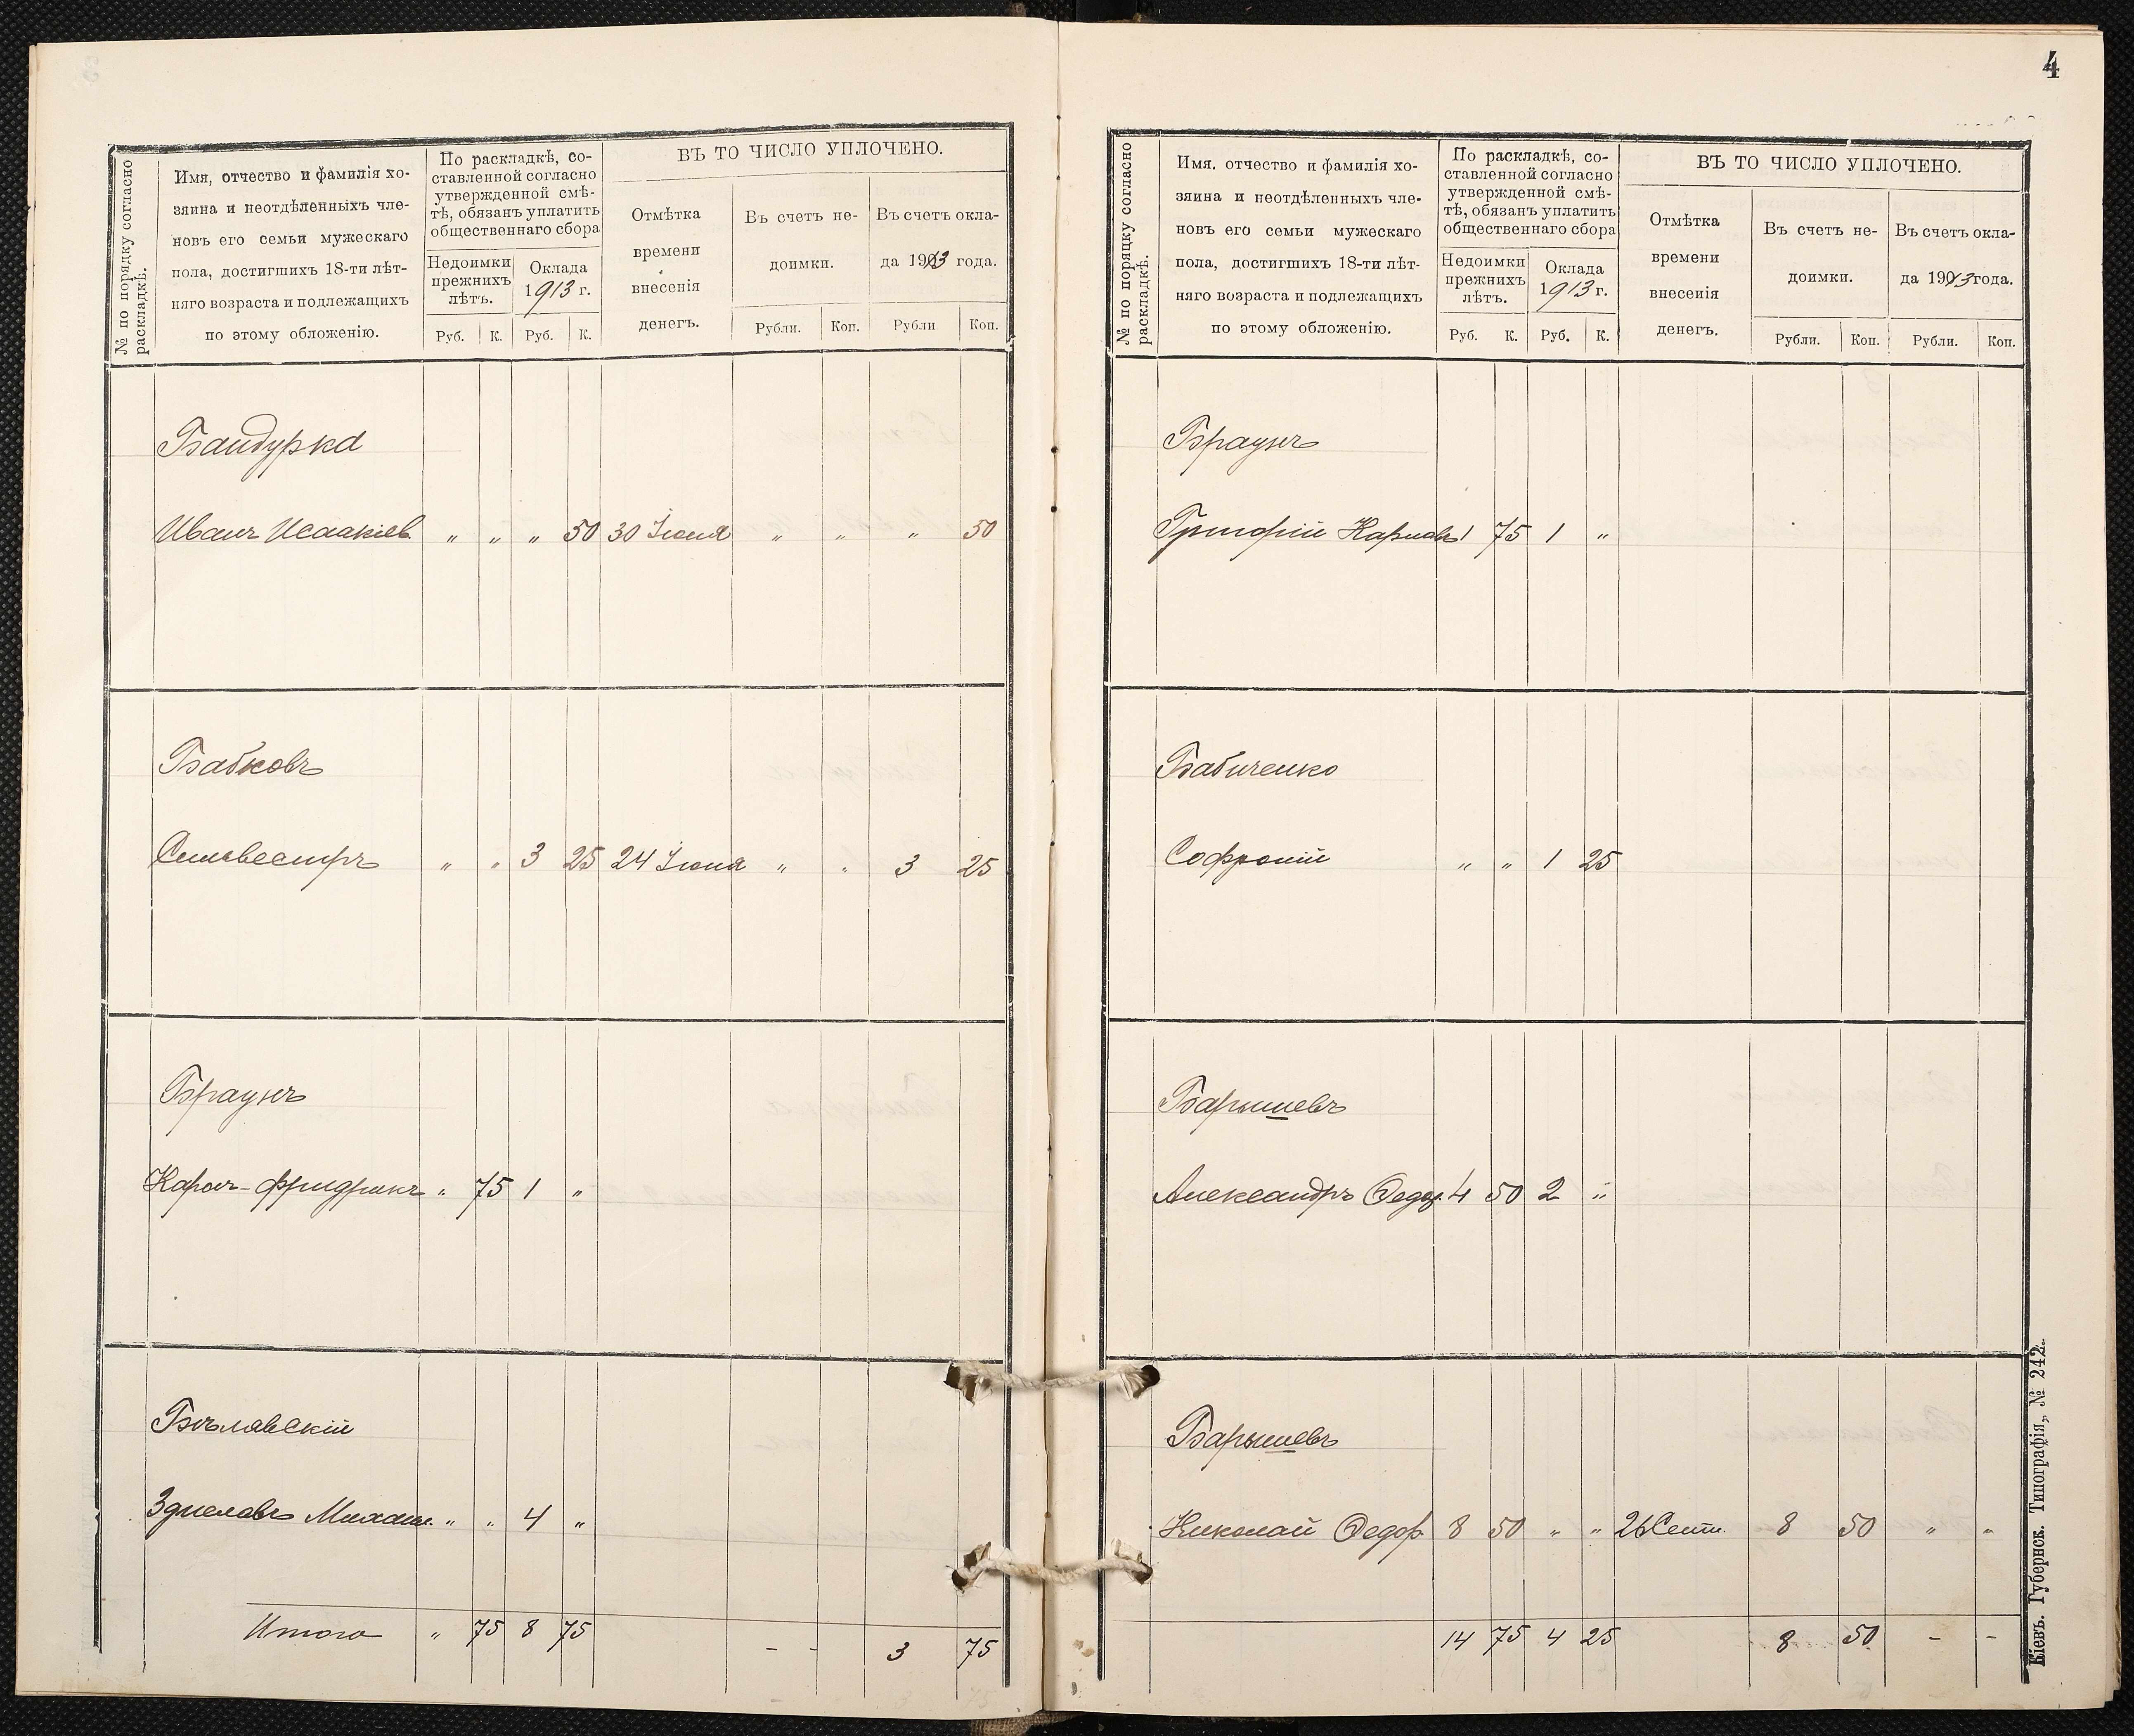 4
№ по порядку согласно
раскладкѣ.
Имя, отчество и фамилія хо-
зяина и неотдѣленныхъ чле-
новъ его семьи мужескаго
пола, достигшихъ 18-ти лѣт-
няго возраста и подлежащихъ
по этому обложенію.
По раскладкѣ, со-
ставленной согласно
утвержденной смѣ-
тѣ, обязанъ уплатить
общественнаго сбора
Недоимки
прежнихъ
лѣтъ.
Оклада
1913 г.
Руб. К. Руб. К.
ВЪ ТО ЧИСЛО УПЛОЧЕНО.
Отмѣтка
времени
внесенія
денегъ.
Въ счетъ не-
доимки.
Въ счетъ окла-
да 1913 года.
Рубли. Коп. Рубли Коп.
Бандурка
Иванъ Исаакіев. „ „ „ 50 30 Іюня „ „ „ 50
Бабковъ
Сильвестръ „ „ 3 25 24 Іюня „ „ 3 25
Браунъ
Карлъ-Фридрихъ „ 75 1 „
Бѣлявскій
Здиславъ Михаил. „ „ 4 „
Итого „ 75 8 75 - - 3 75
№ по порядку согласно
раскладкѣ.
Имя, отчество и фамилія хо-
зяина и неотдѣленныхъ чле-
новъ его семьи мужескаго
пола, достигшихъ 18-ти лѣт-
няго возраста и подлежащихъ
по этому обложенію.
По раскладкѣ, со-
ставленной согласно
утвержденной смѣ-
тѣ, обязанъ уплатить
общественнаго сбора
Недоимки
прежнихъ
лѣтъ.
Оклада
1913 г.
Руб. К. Руб. К.
ВЪ ТО ЧИСЛО УПЛОЧЕНО.
Отмѣтка
времени
внесенія
денегъ.
Въ счетъ не-
доимки.
Въ счетъ окла-
да 1913 года.
Рубли. Коп. Рубли. Коп.
Браунъ
Григорій Карловъ 1 75 1 „
Бабиченко
Софроній „ „ 1 25
Барышевъ
Александръ Федор. 4 50 2 „
Барышевъ
Николай Федор. 8 50 „ „ 26 Сент. 8 50 „ „
14 75 4 25 8 50 - -
Кіевъ. Губернск. Типографія„ № 242.